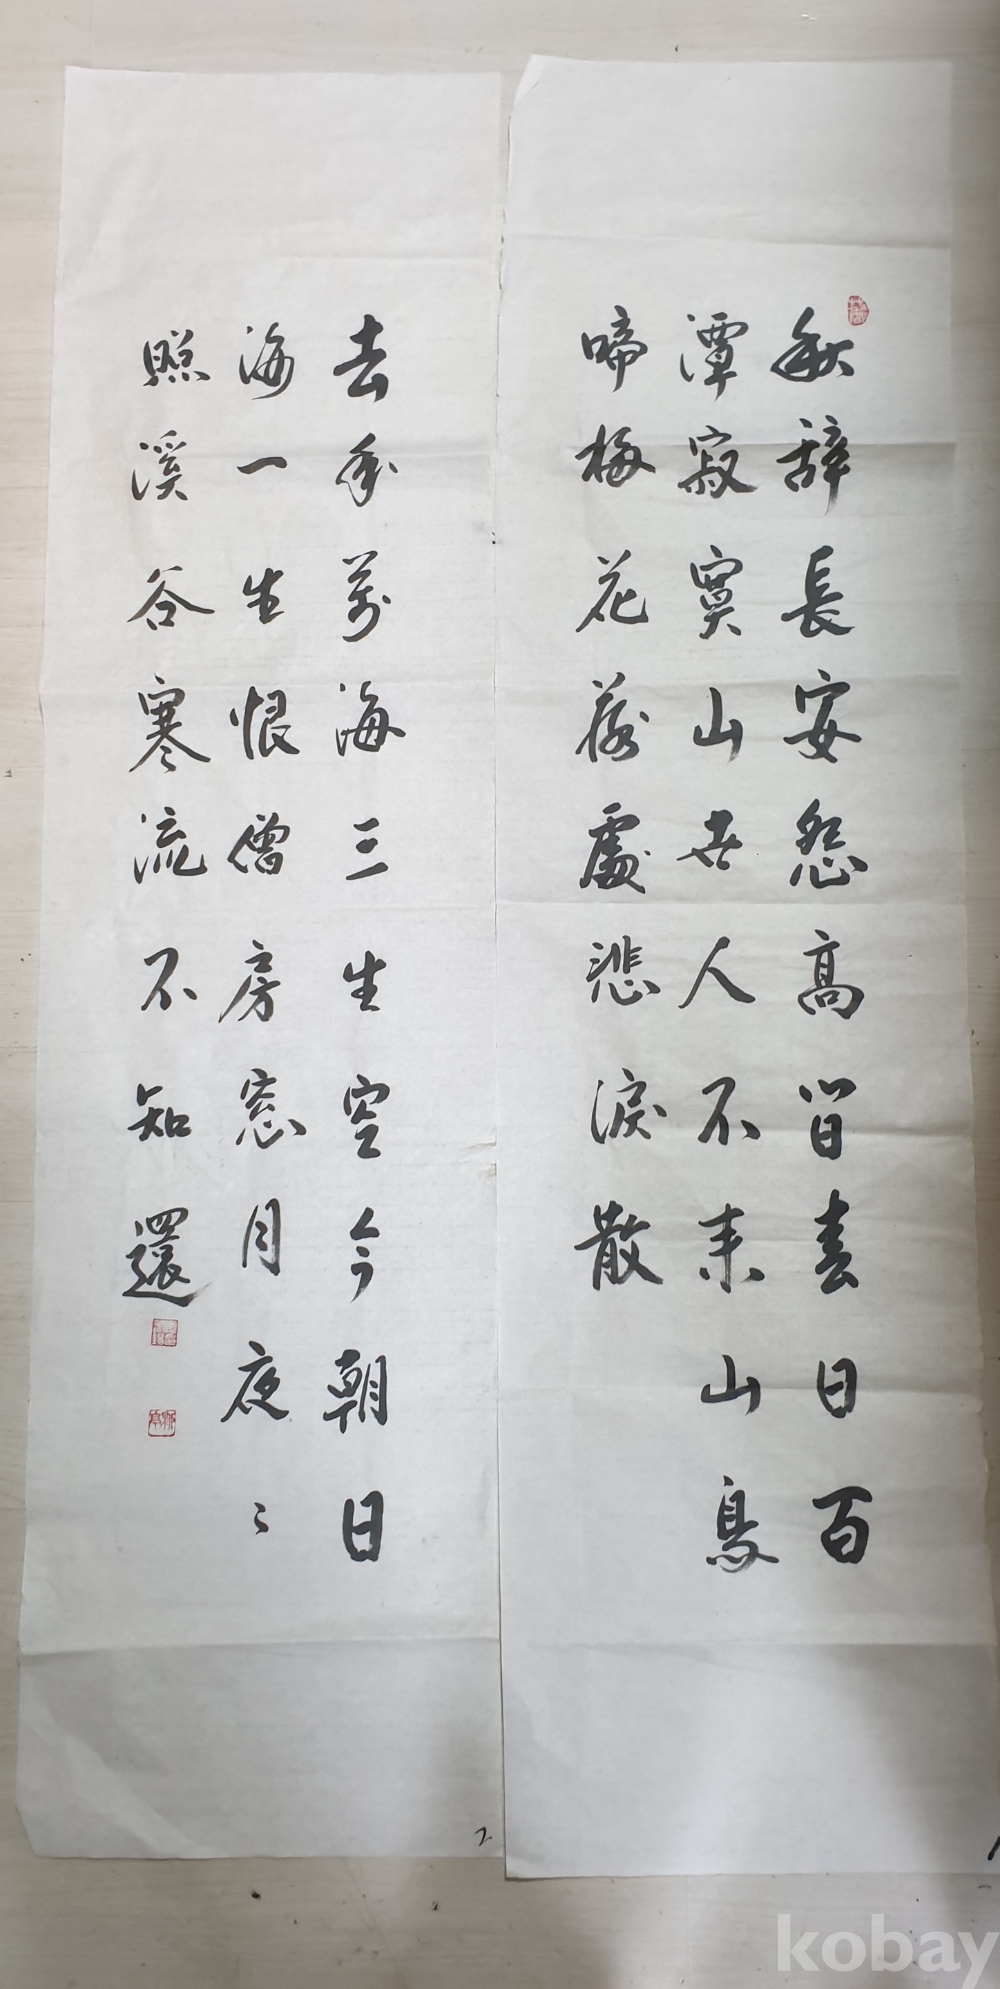 秋辭長安怨高皆春日百
潭寂寞山無人不來山鳥
啼梅花落處悲淚散
去年萬海三生空今朝日
海一生恨僧房窓月夜〻
照溪谷寒流不知還
2
kobay